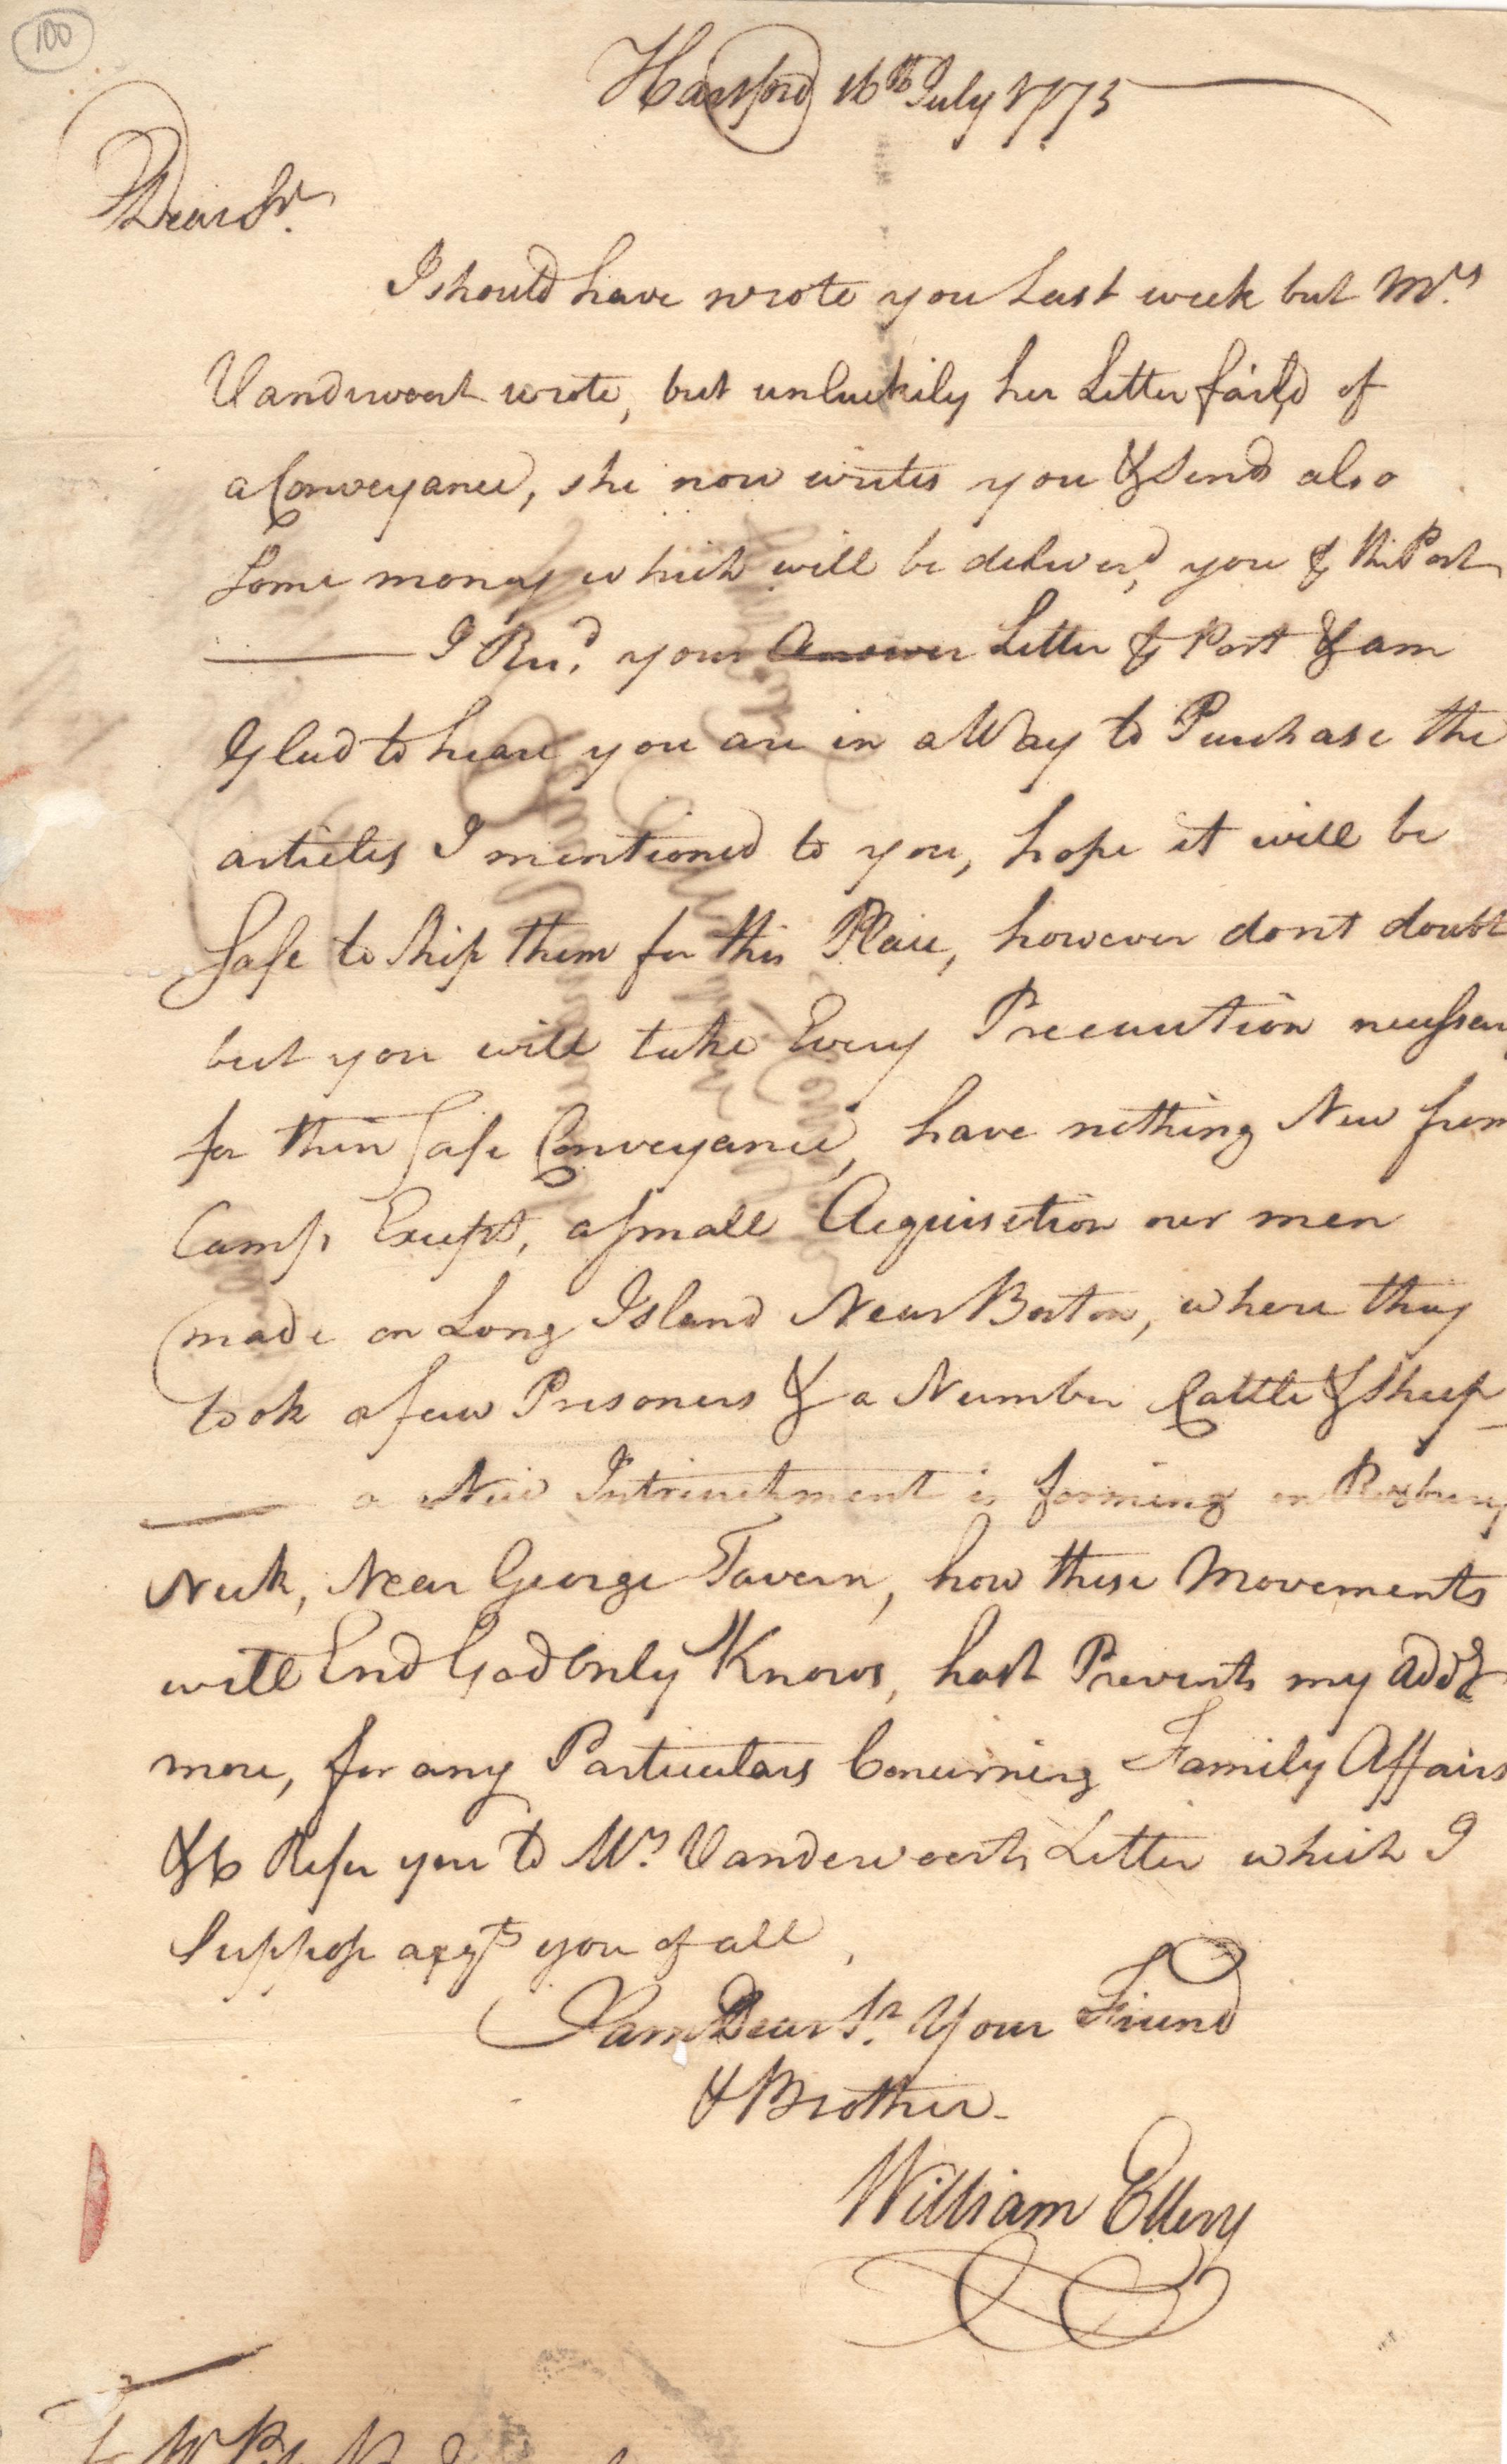 100
Hartford 16th July 1775
Dear Sr.
I should have wrote you Last week but Mrs
Vandervoort wrote, but unluckily her Letter fail'd of
a Conveyance, she now writes you & Send also
Some money which will be deliver'd you ⅌ this Post
I Recd. your Answer Letter ⅌ Post & am
Glad to hear you are in a Way to Purchase the
articles I mentioned to you, hope it will be
Safe to Ship them for this Place, however dont doubt
but you will take Every Precaution necessary
for their Safe Conveyance, have nothing New from
Camp Except, a small Acquisition our men
made on Long Island Near Boston, where they
took a few Prisoners & a Number Cattle & Sheep
a New Intrenchment is forming on Roxbury
Neck, Near George Tavern, how these Movements
will End God Only Knows, hast Prevents my add.g
more, for any Particulars Concerning Family Affairs
&c Refer you to Mrs. Vandervoorts Letter which I
Suppose you of all,
I am Dear Sr. Your Friend
& Brother
William Ellery
To Mr